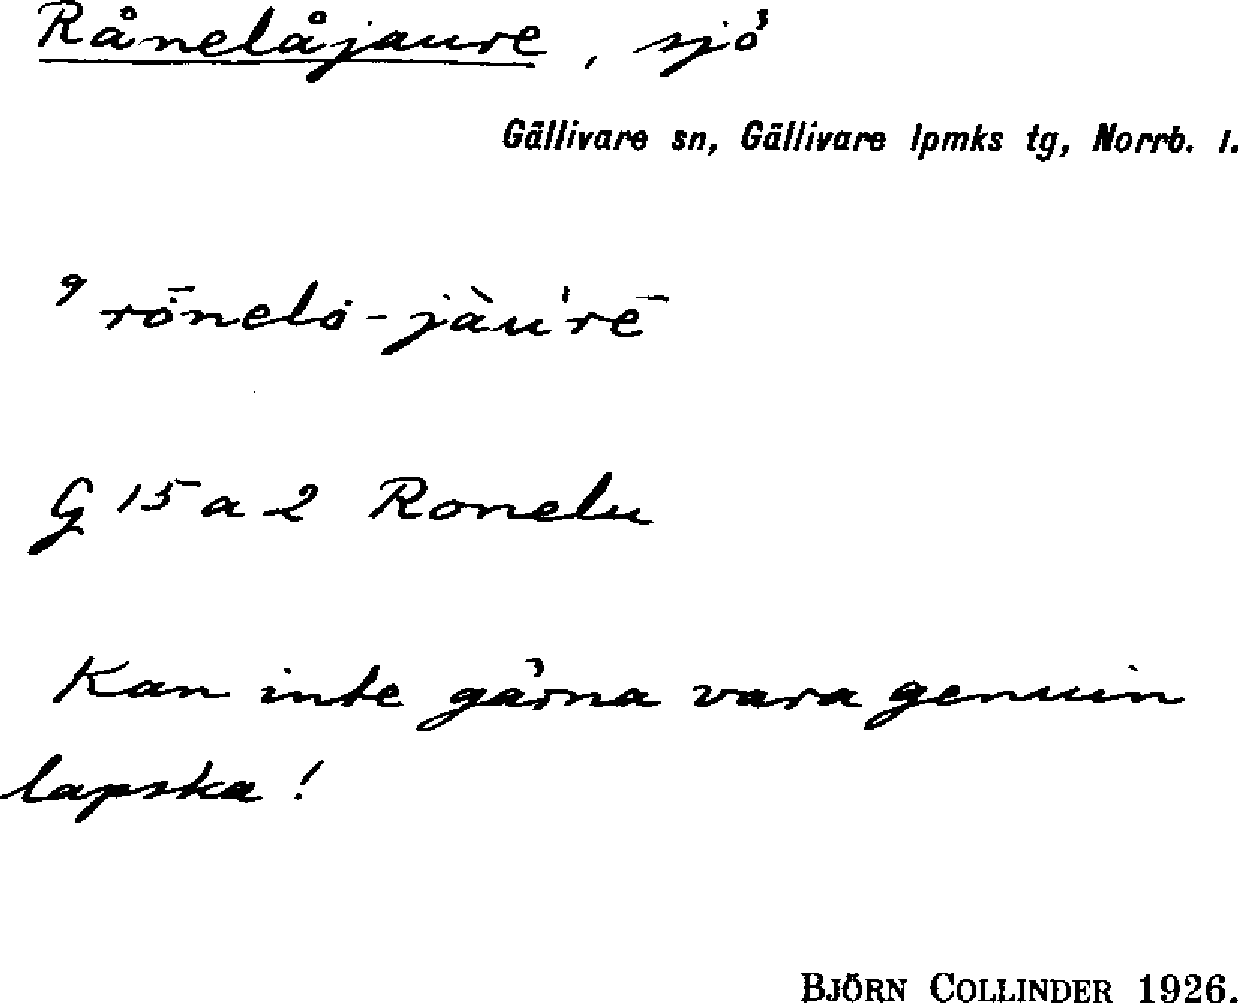 Rånelåjaure, sjö
Gällivare sn, Gällivare lpmks tg, Norrb. l.
9 rō̇nelȯ-jàu'rē
G 15 a 2 Ronelu
Kan inte gärna vara genuin
lapska!
BJÖRN COLLINDER 1926.